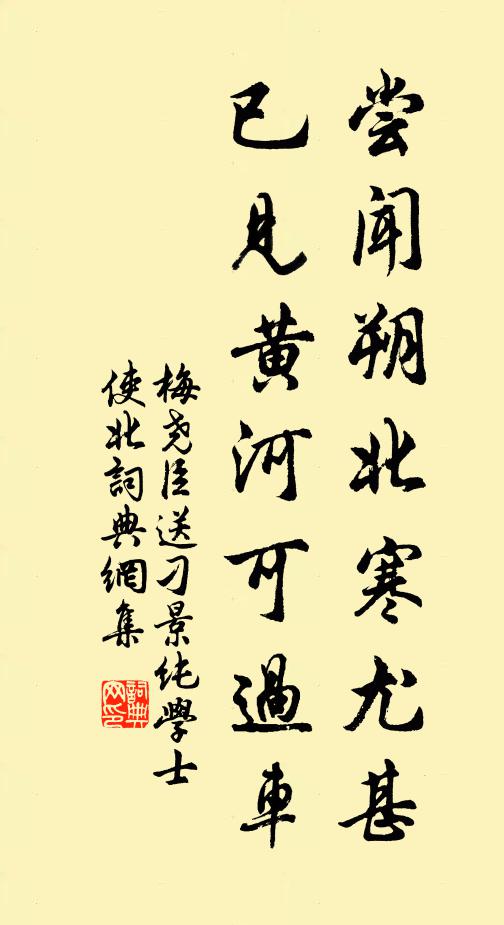 尝闻朔北寒尤甚
已见黄河可過車
梅尧臣送刁景纯學士
使北詞典網集
詞典
网印